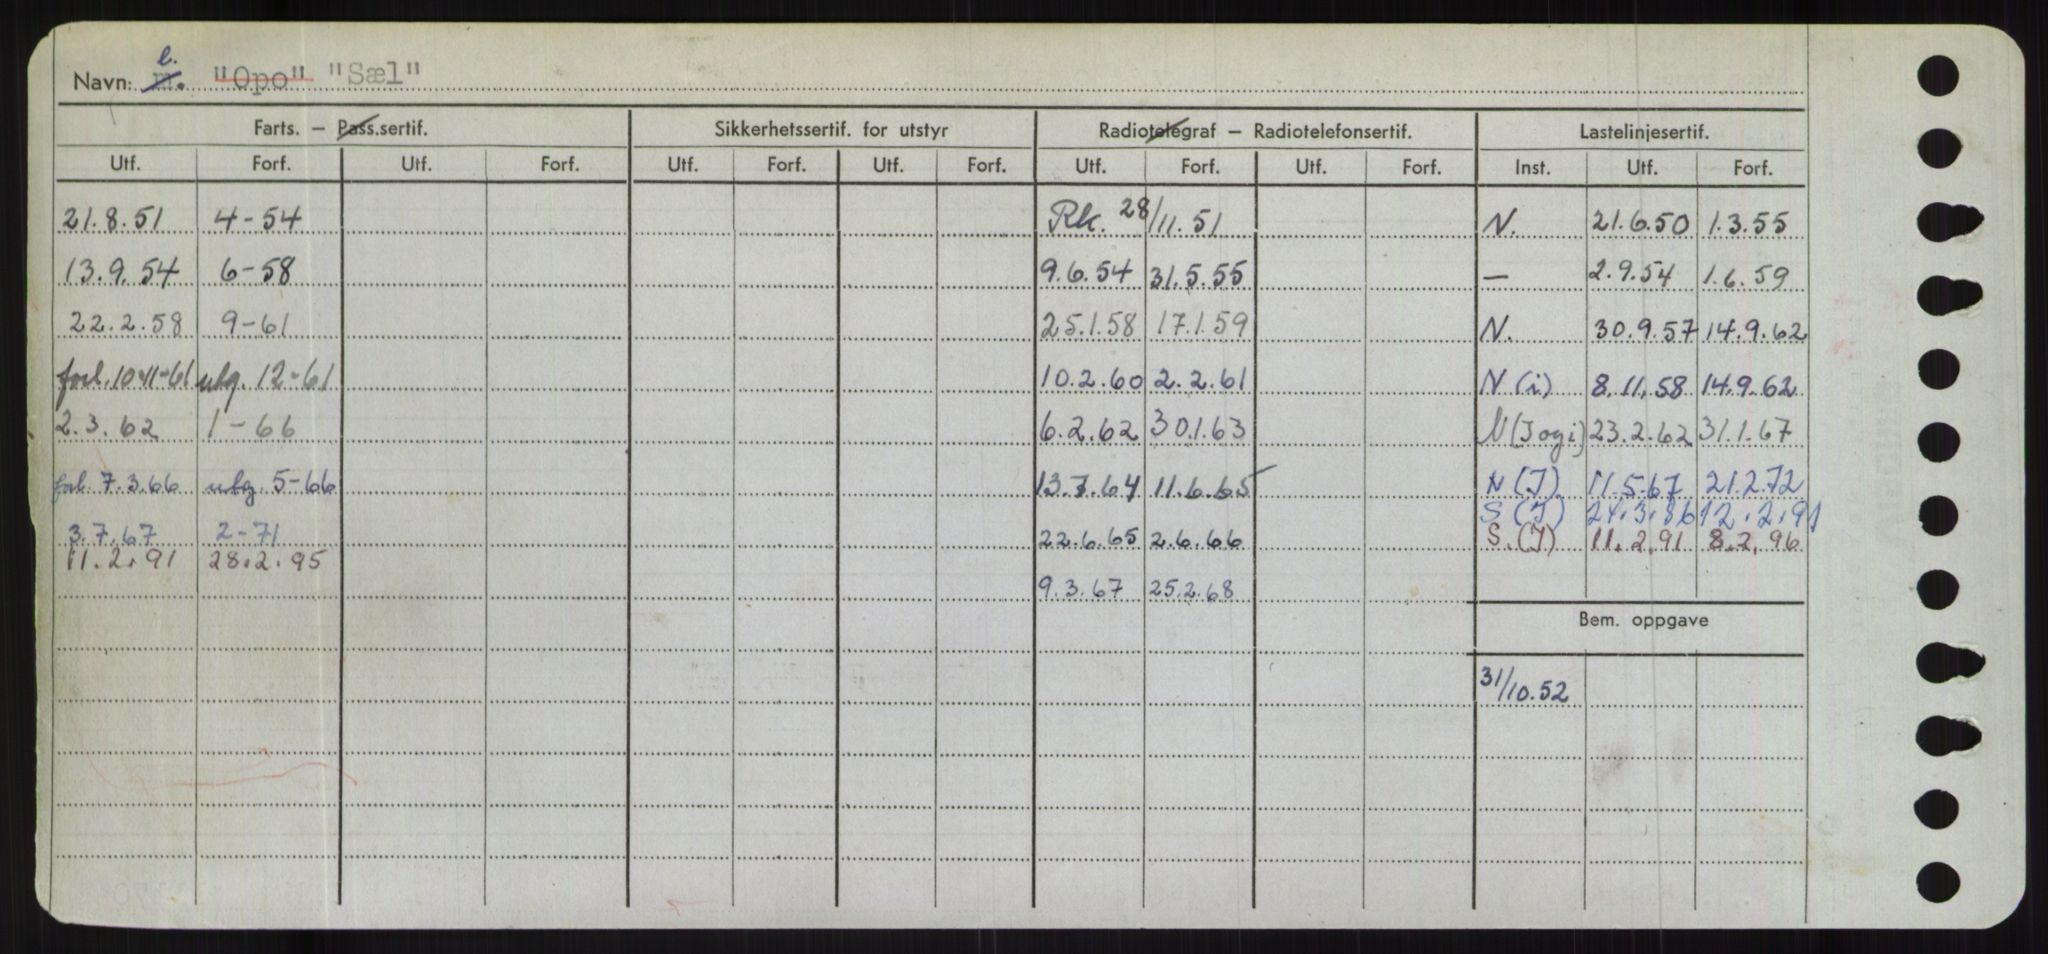 l.
Navn: m. "Opo" "Sæl"
Farts. – Pass.sertif. Sikkerhetssertif. for utstyr Radiotelegraf – Radiotelefonsertif. Lastelinjesertif.
Utf. Forf. Utf. Forf. Utf. Forf. Utf. Forf. Utf. Forf. Utf. Forf. Inst. Utf. Forf.
21.8.51 4-54 Rk. 28/11.51 N. 21.6.50 1.3.55
13.9.54 6-58 9.6.54 31.5.55 — 2.9.54 1.6.59
22.2.58 9-61 25.1.58 17.1.59 N. 30.9.57 14.9.62
forl. 10-11-61 utg. 12-61 10.2.60 2.2.61 N (i) 8.11.58 14.9.62
2.3.62 1-66 6.2.62 30.1.63 N (I og i) 23.2.62 31.1.67
forl. 7.3.66 utg. 5-66 13.7.64 11.6.65 N (I) 11.5.67 21.2.72
S (I) 24.3.86 12.2.91
3.7.67 2-71 22.6.65 2.6.66 S. (I) 11.2.91 8.2.96
11.2.91 28.2.95
9.3.67 25.2.68
Bem. oppgave
31/10.52